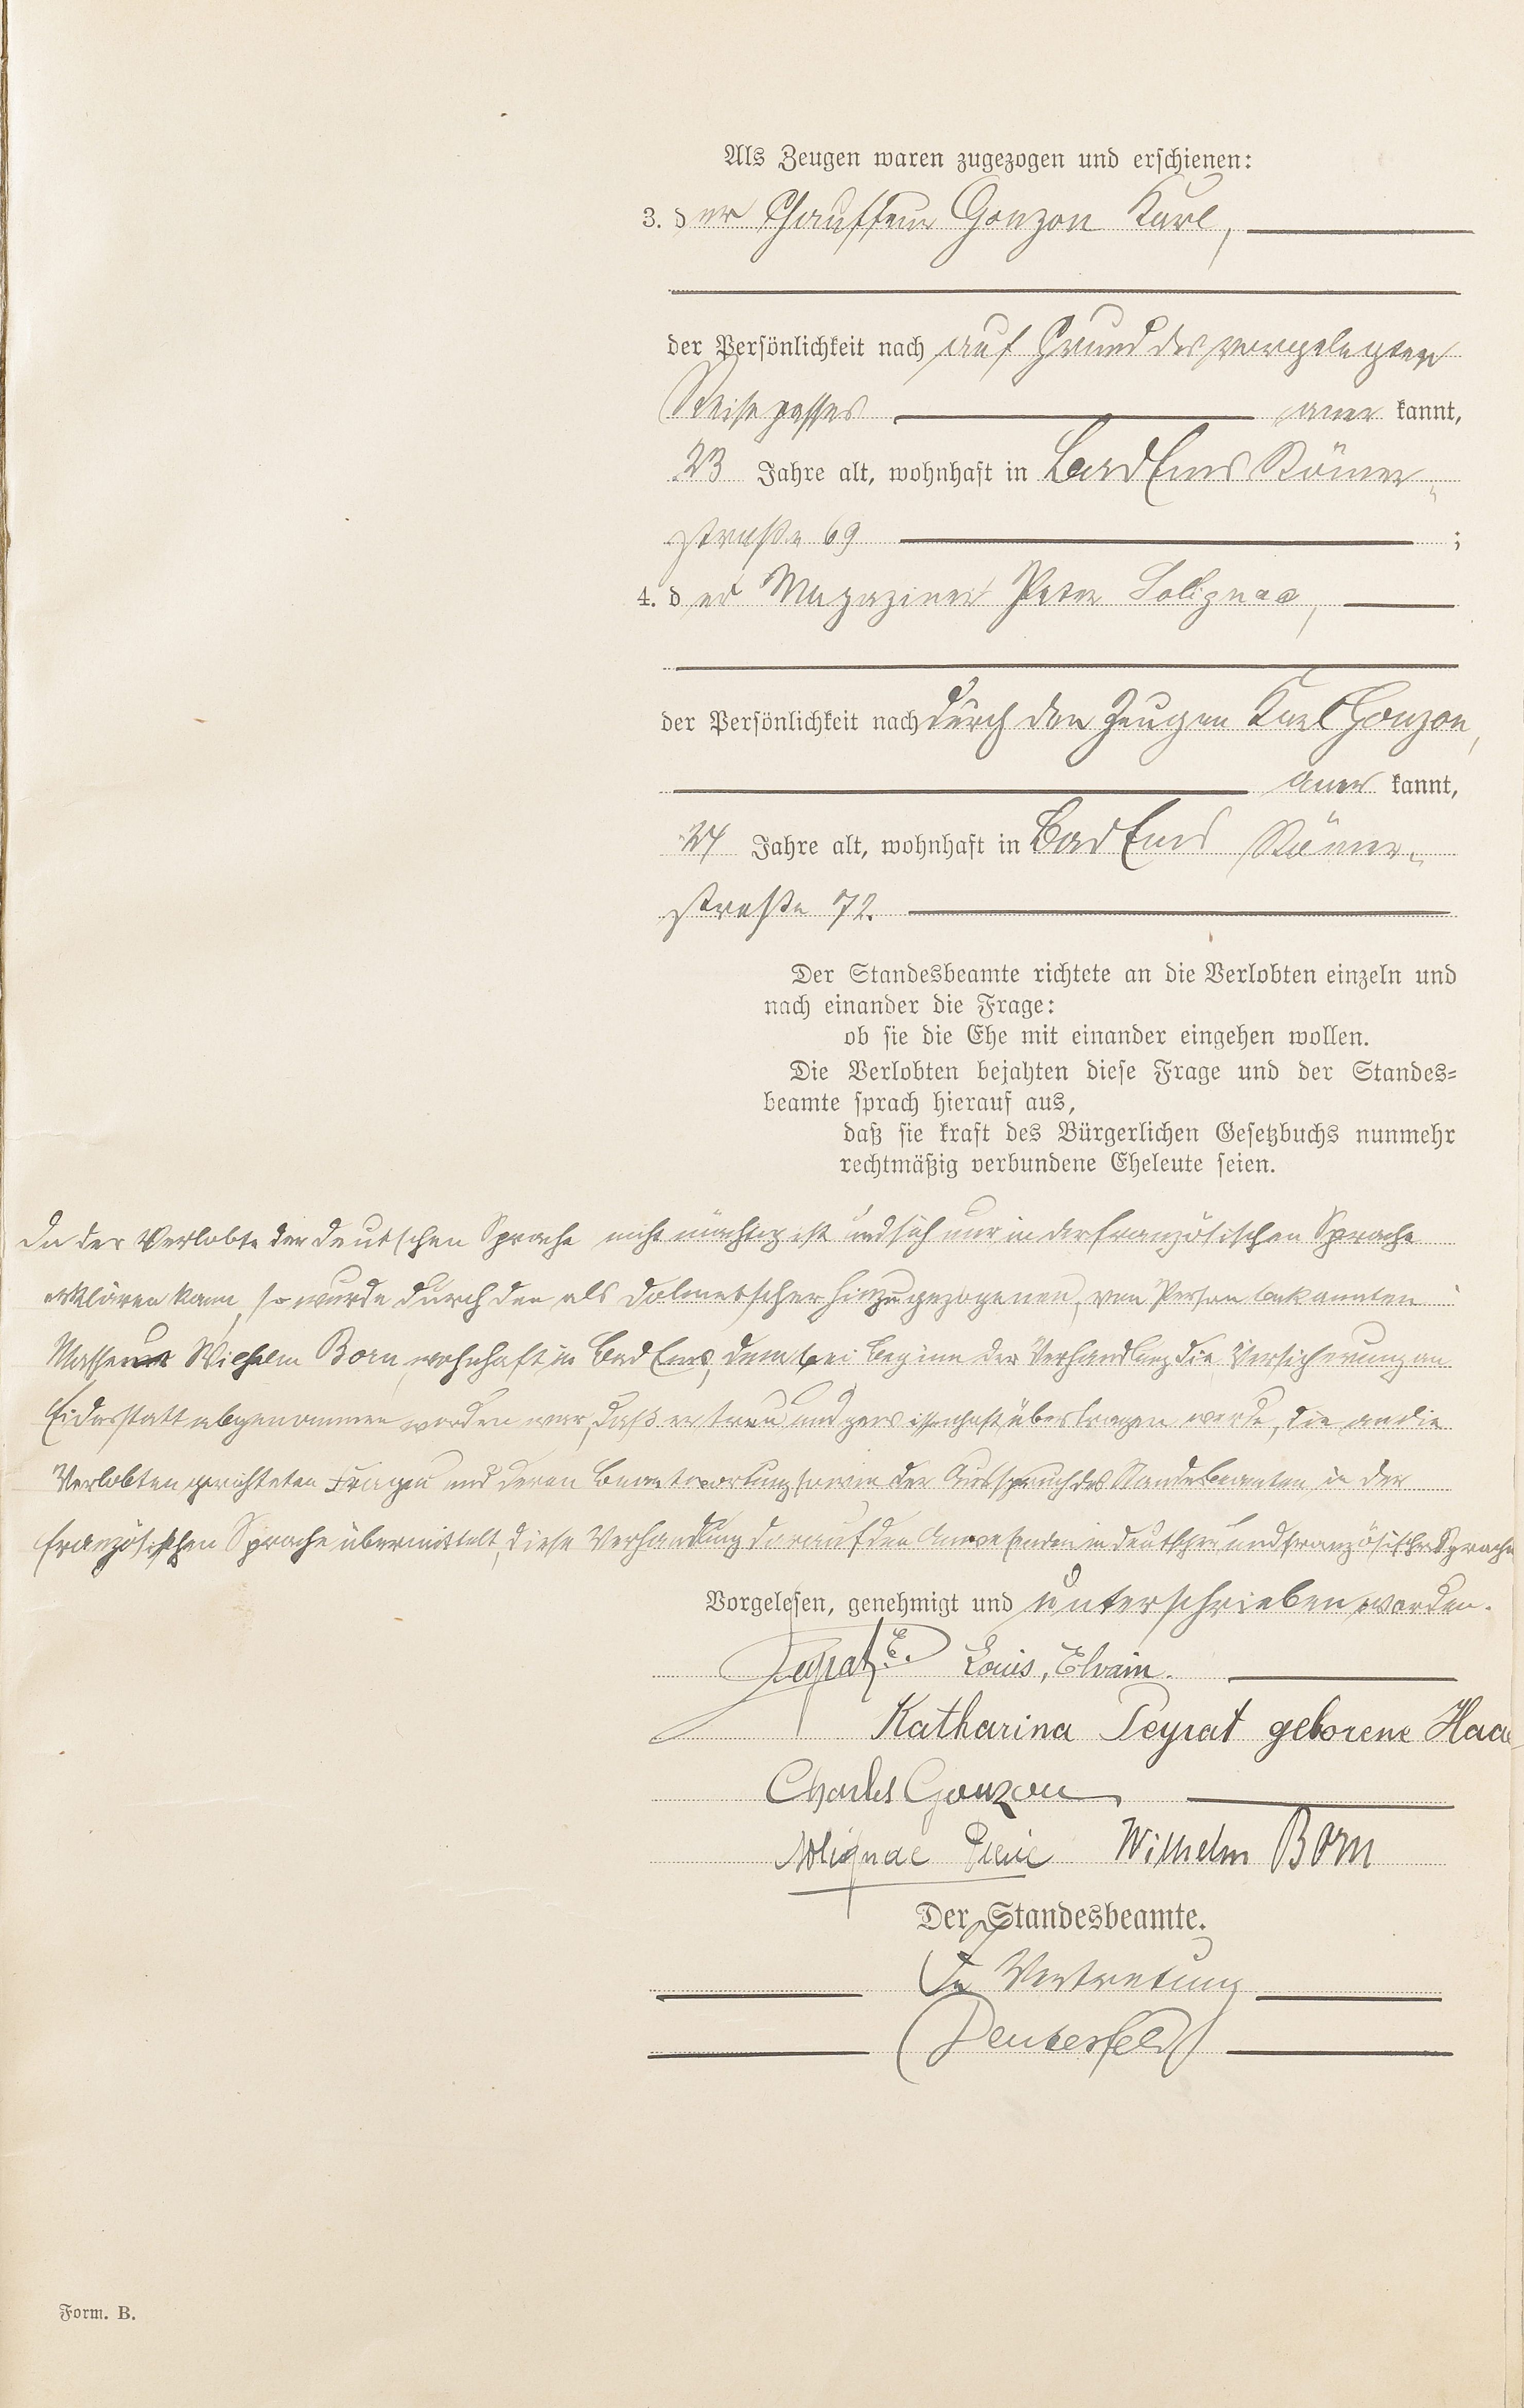 Als Zeugen waren zugezogen und erschienen:
3. der Chauffeur Gonzon Karl,
der Persönlichkeit nach auf Grund des vorgelegten
Reisepasses aner kannt,
23 Jahre alt, wohnhaft in Bad Ems Römer-
straße 69 ;
4. der Magaziner Peter Solignac,
der Persönlichkeit nach durch den Zeugen Karl Gonzon,
aner kannt,
24 Jahre alt, wohnhaft in Bad Ems Römer-
straße 72.
Der Standesbeamte richtete an die Verlobten einzeln und
nach einander die Frage:
ob sie die Ehe mit einander eingehen wollen.
Die Verlobten bejahten diese Frage und der Standes-
beamte sprach hierauf aus,
daß sie kraft des Bürgerlichen Gesetzbuchs nunmehr
rechtmäßig verbundene Eheleute seien.
Da der Verlobte der deutschen Sprache nicht mächtig ist und sich nur in der französischen Sprache
erklären kann, so wurde durch den als Dolmetscher hinzugezogenen, von Person bekannten
Masseur Wilhelm Born, wohnhaft in Bad Ems, dem bei Beginn der Verhandlung die Versicherung an
Eidesstatt abgenommen worden war, daß er treu und gewissenhaft übertragen werde, die an die
Verlobten gerichteten Fragen und deren Beantwortung sowie der Ausspruch des Standesbeamten in der
französischen Sprache übermittelt, diese Verhandlung darauf den Anwesenden in deutscher und französischer Sprache
Vorgelesen, genehmigt und unterschrieben worden.
Peyrat Louis,
Katharina Peyrat geborene Haa
Charles Gonzon
Solignac Pierre Wilhelm Born
Der Standesbeamte.
In Vertretung
Form. B.